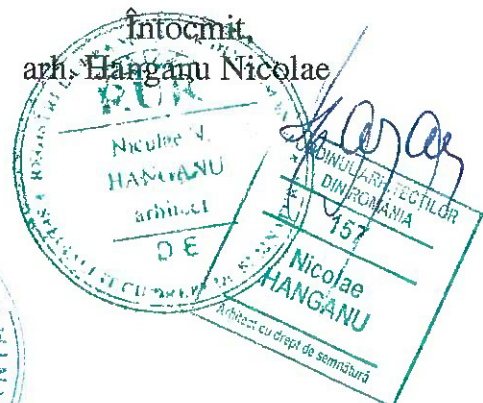 Întocmit,
arh. Hanganu Nicolae
R.U.R.
Niculae V.
HANGANU
arhitect
D E
ORDINUL ARHITECȚILOR
DIN ROMÂNIA
157
Nicolae
HANGANU
Arhitect cu drept de semnătură